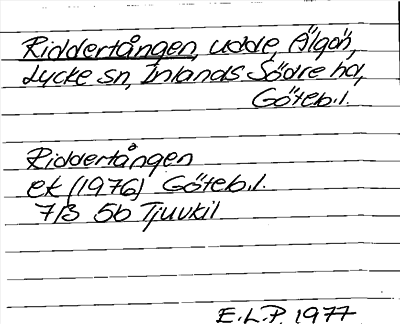 Riddertången, udde, Älgön,
Lycke sn, Inlands Södre hd,
Göteb.l.
Riddertången
ek (1976) Göteb.l.
7B 5b Tjuvkil
E.L.P. 1977